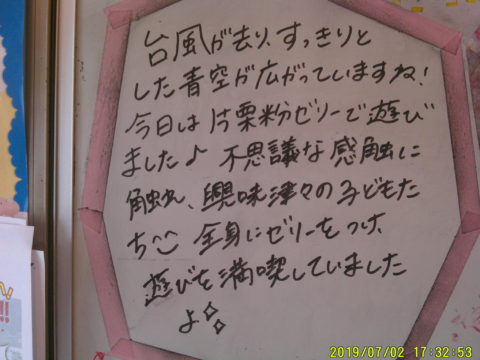 台風が去り、すっきりと
した青空が広がっていますね!
今日は片栗粉ゼリーで遊び
ました♪ 不思議な感触に
触れ、興味津々の子どもた
ち^^ 全身にゼリーをつけ、
遊びを満喫していました
よ✧✧
2019/07/02 17:32:53